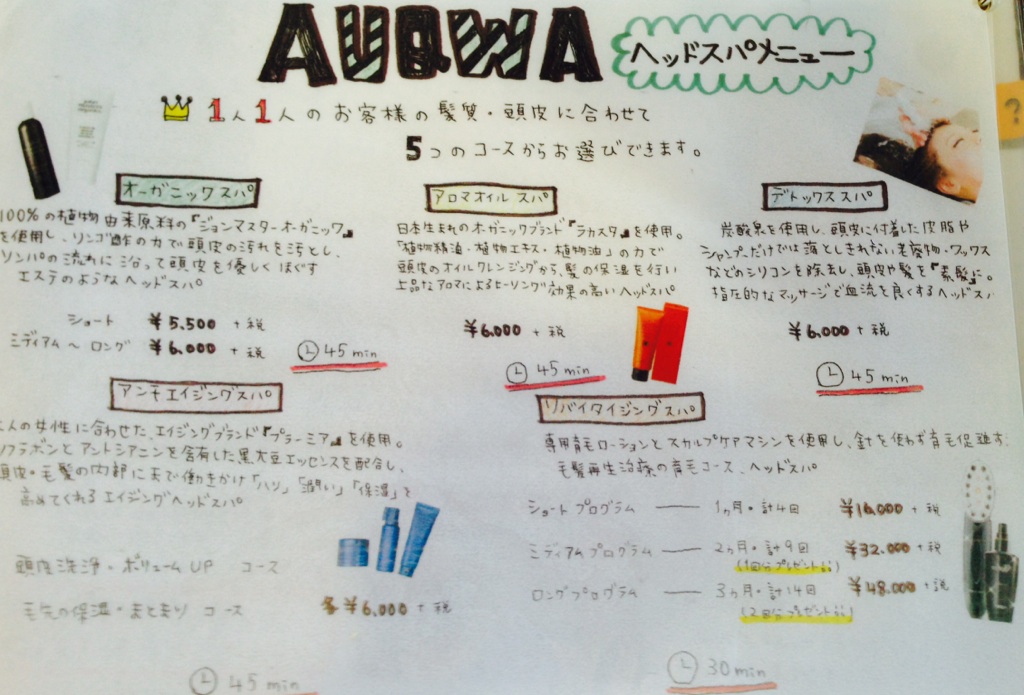 AUQWA
ヘッドスパメニュー
1人1人のお客様の髪質・頭皮に合わせて
5つのコースからお選びできます。
オーガニックスパ
100%の植物由来原料の『ジョンマスターオーガニック』
を使用し、リンゴ酢の力で頭皮の汚れを汚とし、
リンパの流れに沿って頭皮を優しくほぐす
エステのようなヘッドスパ
ショート ¥5,500 +税
ミディアム〜ロング ¥6,000 +税
45min
アロマオイルスパ
日本生まれのオーガニックブランド『ラカスタ』を使用。
「植物精油・植物エキス・植物油」の力で
頭皮のオイルクレンジングから、髪の保湿を行い
上品なアロマによるヒーリング効果の高いヘッドスパ
¥6,000 +税
45min
デトックススパ
炭酸泉を使用し、頭皮に付着した皮脂や
シャンプーだけでは落としきれない老廃物・ワックス
などのシリコンを除去し、頭皮や髪を『素髪』に。
指圧的なマッサージで血流を良くするヘッドスパ
¥6,000 +税
45min
アンチエイジングスパ
大人の女性に合わせた、エイジングブランド『プラーミア』を使用。
ソフラボンとアントシアニンを含有した黒大豆エッセンスを配合し、
頭皮・毛髪の内部にまで働きかけ「ハリ」「潤い」「保湿」を
高めてくれるエイジングヘッドスパ
頭皮洗浄・ボリュームUP コース
毛先の保湿・まとまり コース 各¥6,000 +税
45min
リバイタイジングスパ
専用育毛ローションとスカルプケアマシンを使用し、針を使わず育毛促進す
毛髪再生治療の育毛コース ヘッドスパ
ショートプログラム — 1ヵ月・計4回 ¥16,000 +税
ミディアムプログラム — 2ヵ月・計9回 ¥32,000 +税
(1回分プレゼント!!)
ロングプログラム — 3ヵ月・計14回 ¥48,000 +税
(2回分プレゼント!!)
30min
?